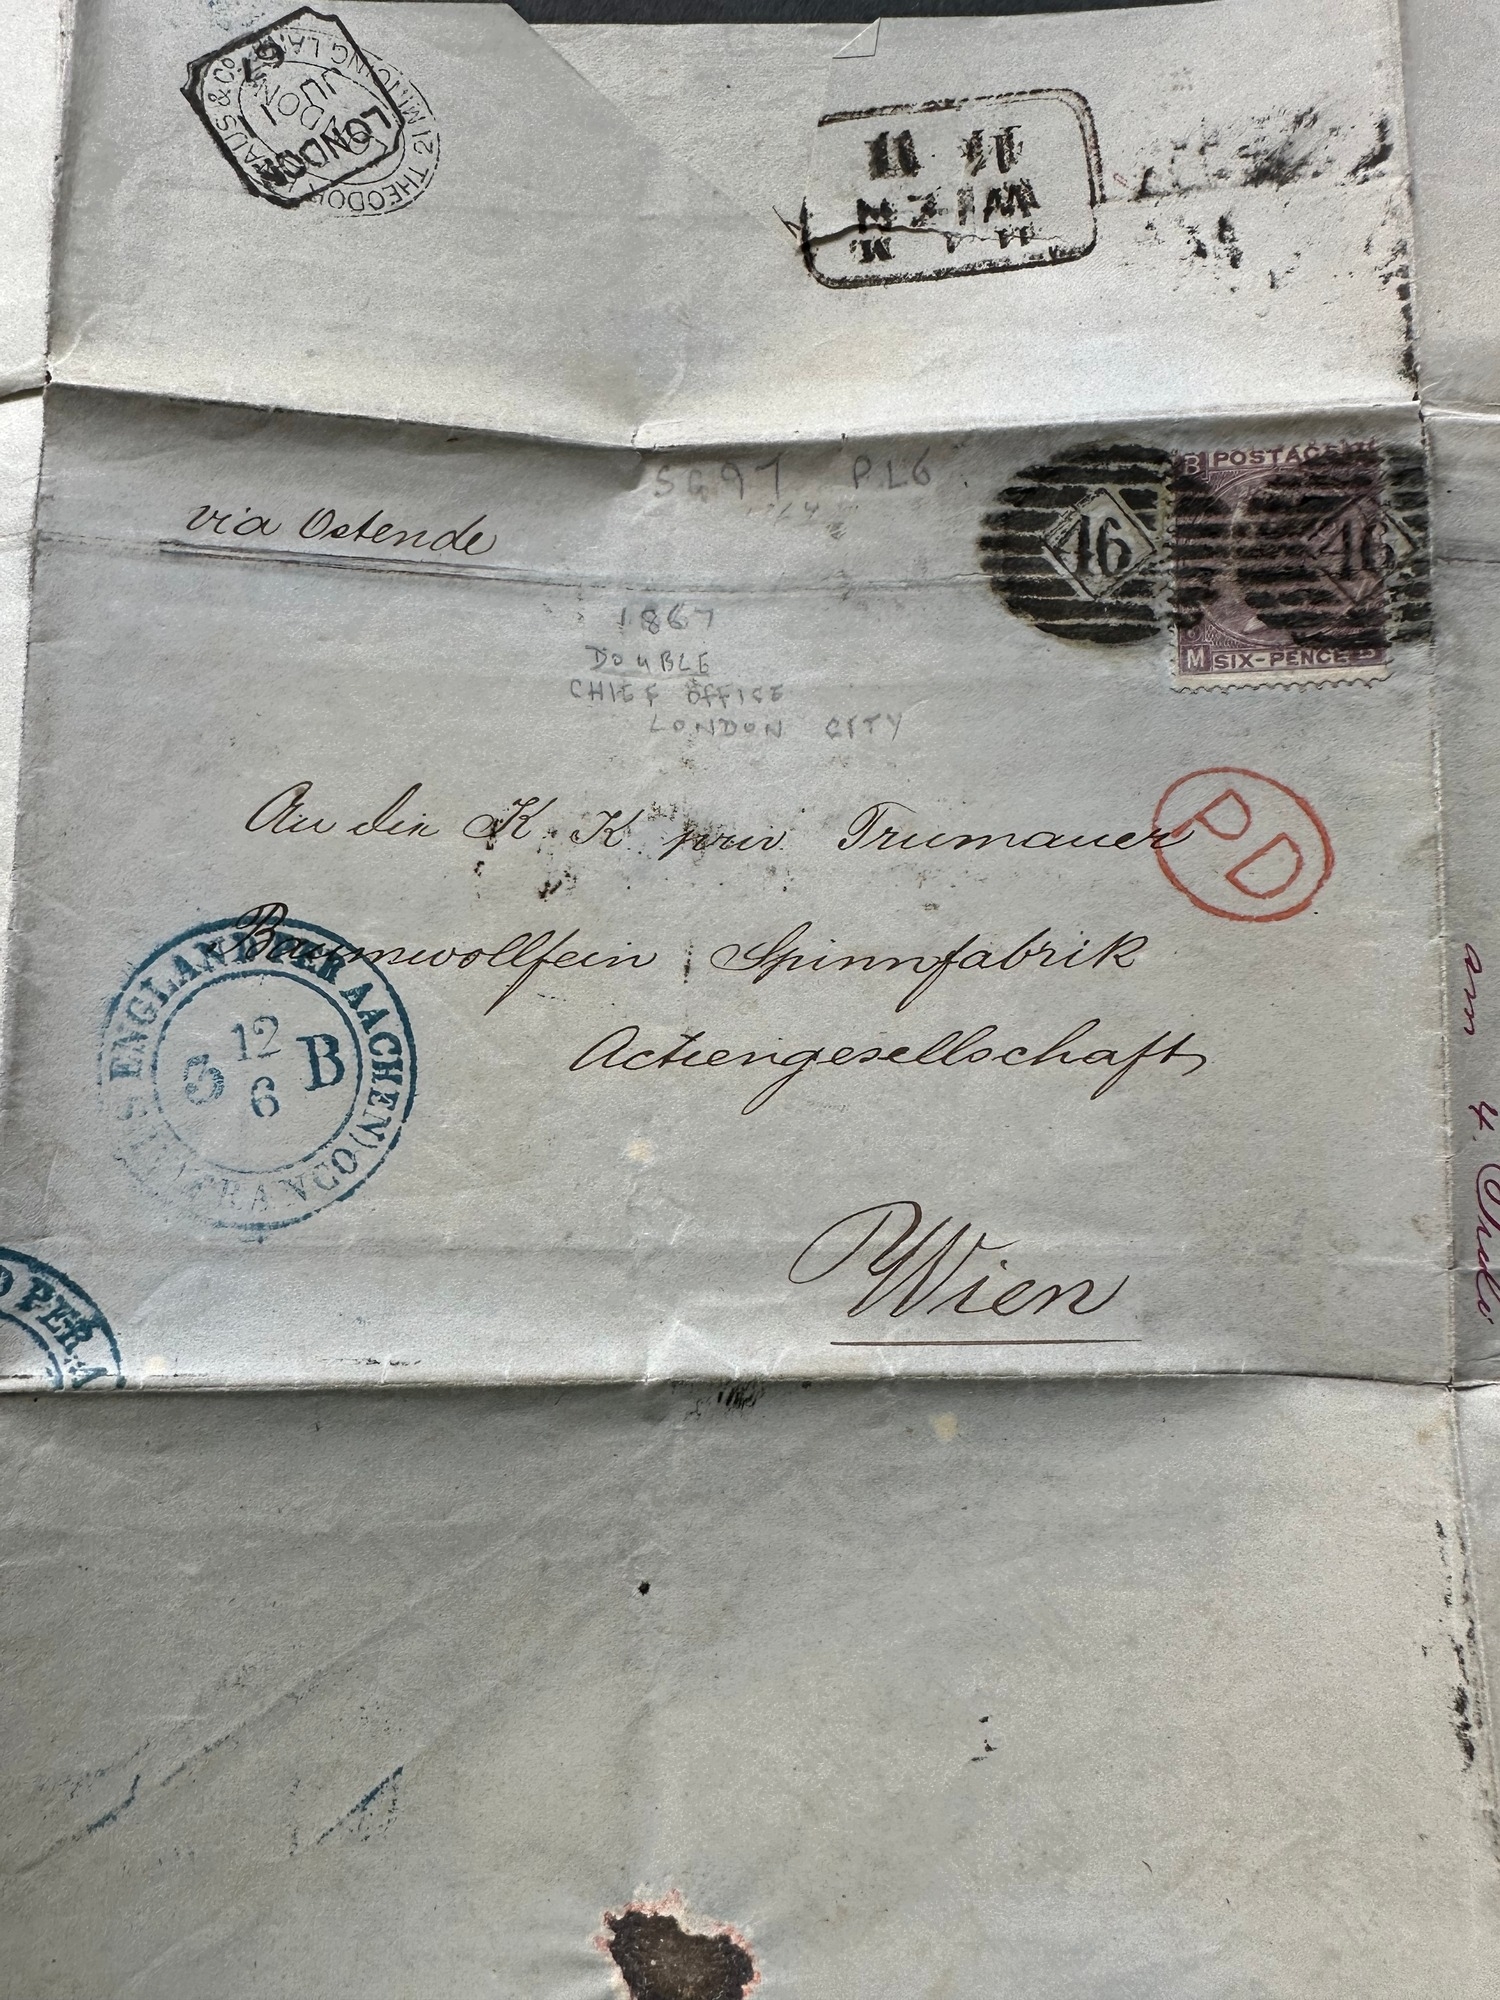 LONDON
67
21 MINCING LA.
THEODOR
& Co
LONDON
JU 1
WIEN
via Ostende
SG97 PL6
B POSTAGE
46
46
M SIX-PENCE B
1867
DOUBLE
CHIEF OFFICE
LONDON CITY
PD
An die K. K. priv Trumauer
Baumwollfein Spinnfabrik
Actiengesellschaft
Wien
ENGLAND PER AACHEN
FRANCO
12
6
B
D PER A
am 4.